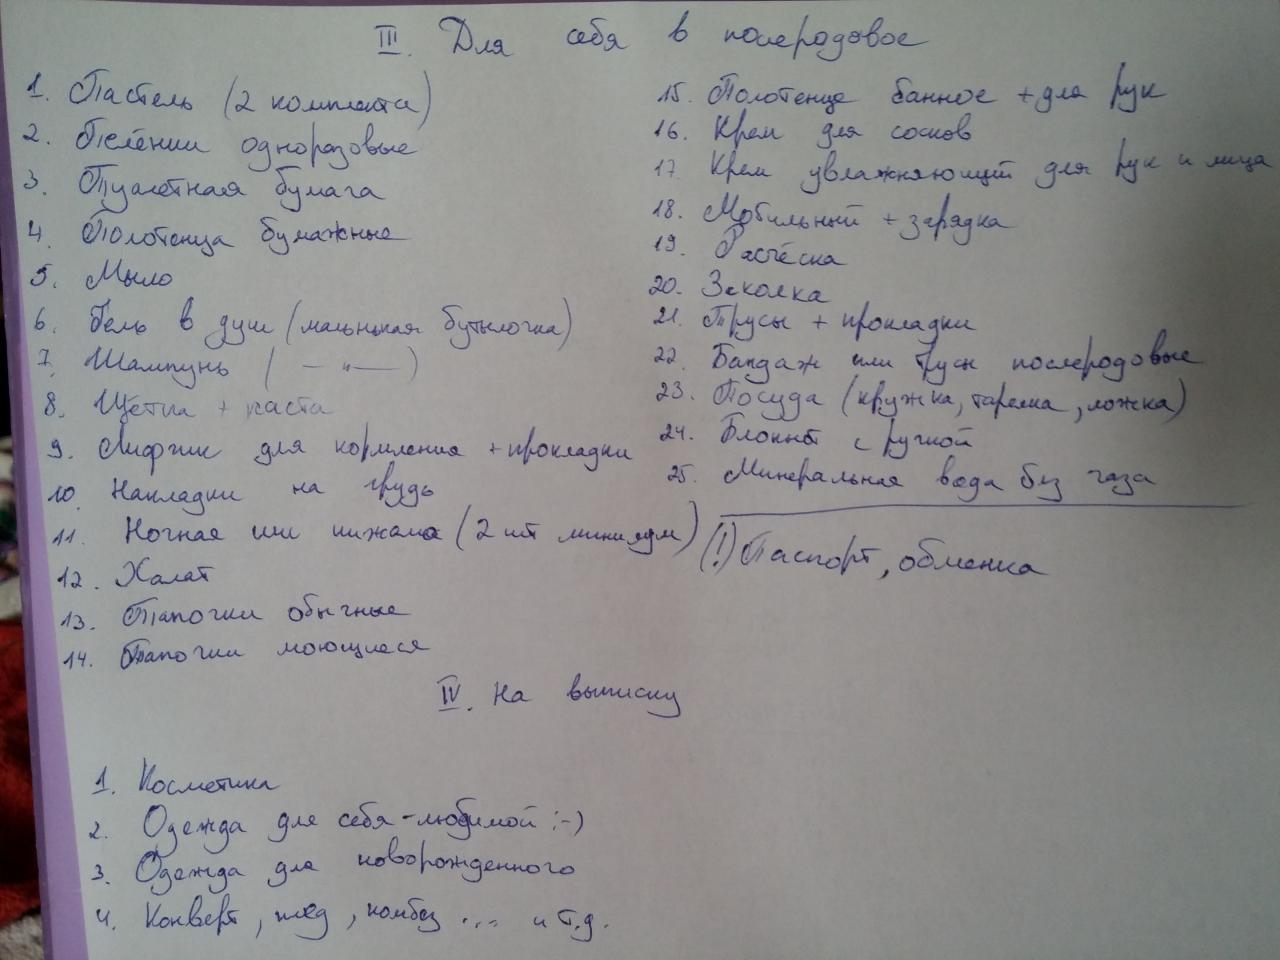 III. Для себя в послеродовое
1. Пастель (2 комплекта)
2. Пелёнки одноразовые
3. Туалетная бумага
4. Полотенца бумажные
5. Мыло
6. Гель в душ (маленькая бутылочка)
7. Шампунь ( — " — )
8. Щётка + паста
9. Лифчик для кормления + прокладки
10. Накладки на грудь
11. Ночная или пижама (2 шт минимум)
12. Халат
13. Тапочки обычные
14. Тапочки моющиеся
15. Полотенце банное + для рук
16. Крем для сосков
17. Крем увлажняющий для рук и лица
18. Мобильный + зарядка
19. Расчёска
20. Заколка
21. Трусы + прокладки
22. Бандаж или трусы послеродовые
23. Посуда (кружка, тарелка, ложка)
24. Блокнот с ручкой
25. Минеральная вода без газа
(!) Паспорт, обменка
IV. На выписку
1. Косметика
2. Одежда для себя-любимой :-)
3. Одежда для новорожденного
4. Конверт, плед, комбез ... и т.д.